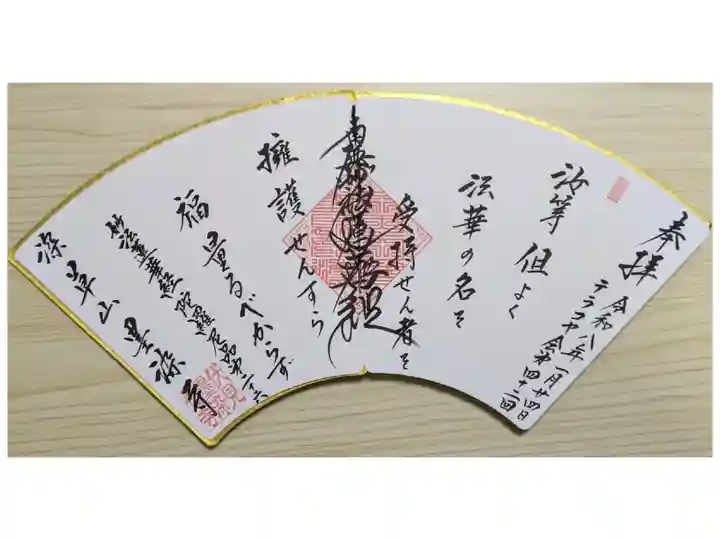 奉拝
令和八年一月廿四日
テラコヤ会第四十二回
汝等但よく
法華の名を
受持せん者を
南無妙法蓮華経
擁護せんすら
福量るべからず
妙法蓮華経陀羅尼品第二十六
深草山墨染寺
伏見
墨染